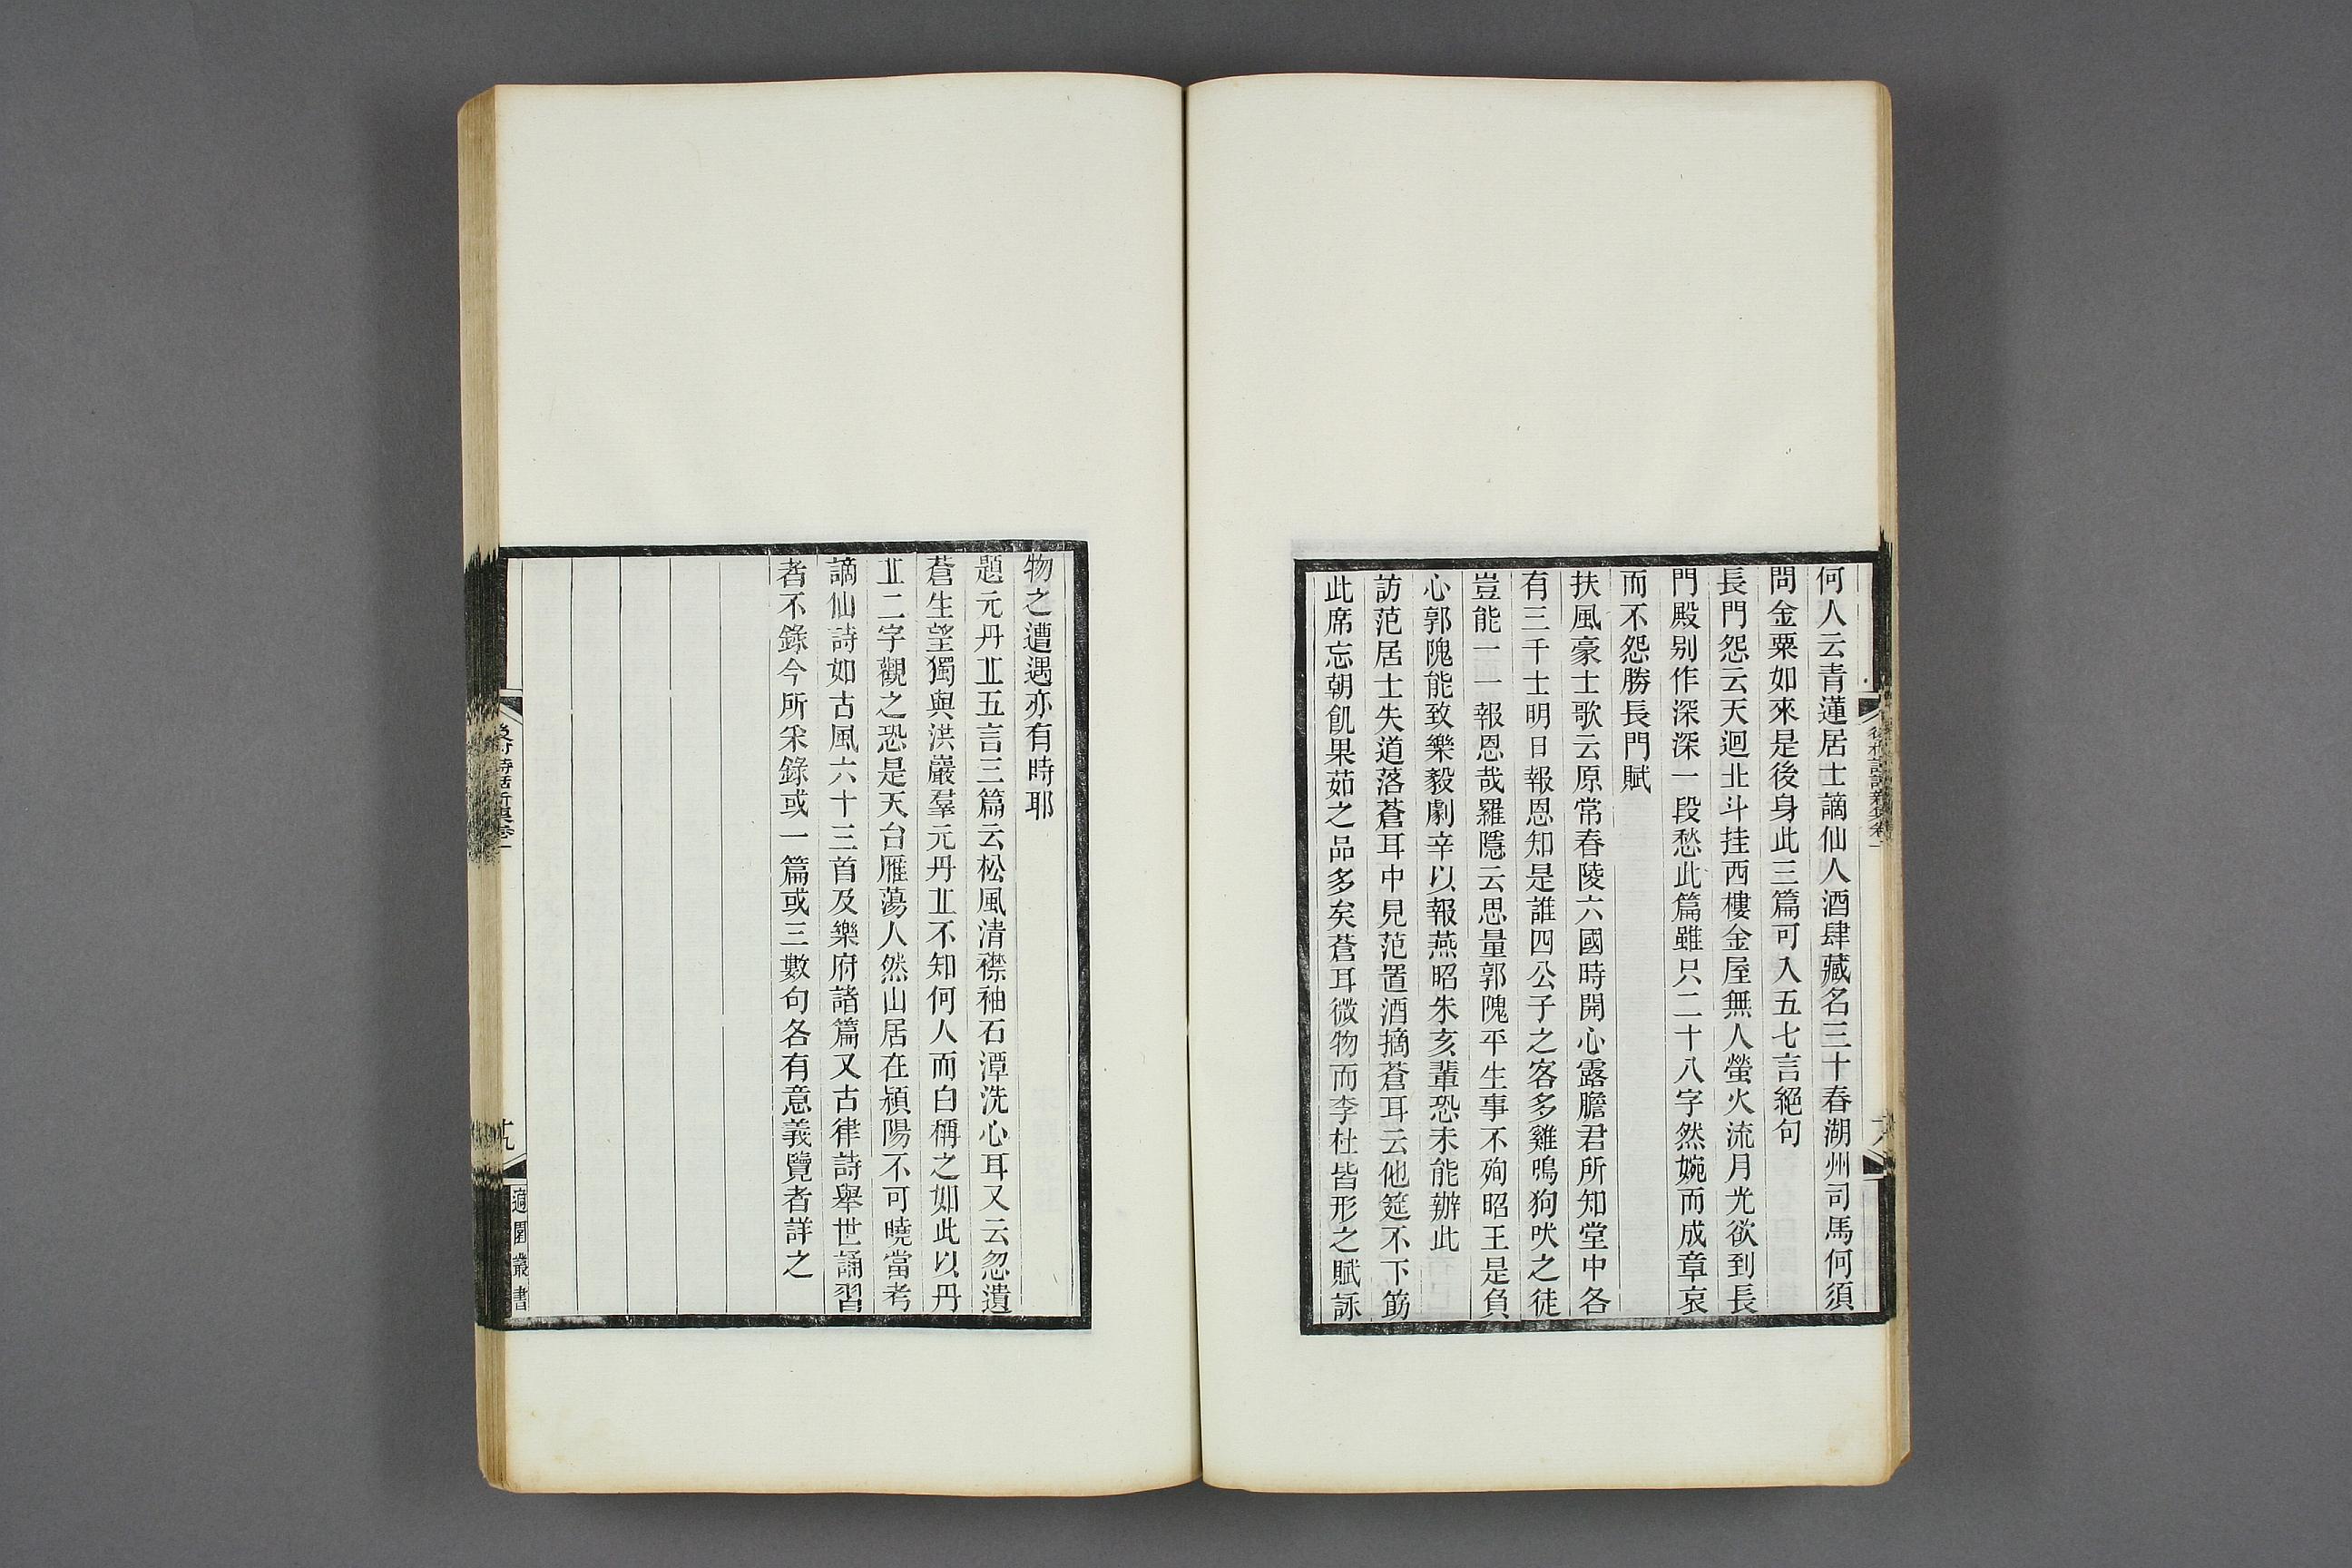 何人云青蓮居士謫仙人酒肆藏名三十春湖州司馬何須
問金粟如來是後身此三篇可入五七言絕句
長門怨云天迴北斗挂西樓金屋無人螢火流月光欲到長
門殿別作深深一段愁此篇雖只二十八字然婉而成章哀
而不怨勝長門賦
扶風豪士歌云原常春陵六國時開心露膽君所知堂中各
有三千士明日報恩知是誰四公子之客多雞鳴狗吠之徒
豈能一一報恩哉羅隱云思量郭隗平生事不殉昭王是負
心郭隗能致樂毅劇辛以報燕昭朱亥輩恐未能辦此
訪范居士失道落蒼耳中見范置酒摘蒼耳云他筵不下筯
此席忘朝飢果茹之品多矣蒼耳微物而李杜皆形之賦詠
後村詩話新集卷一
十八
物之遭遇亦有時耶
題元丹丠五言三篇云松風清襟袖石潭洗心耳又云忽遺
蒼生望獨與洪巖羣元丹丠不知何人而白稱之如此以丹
丠二字觀之恐是天台雁蕩人然山居在潁陽不可曉當考
謫仙詩如古風六十三首及樂府諸篇又古律詩舉世誦習
者不錄今所采錄或一篇或三數句各有意義覽者詳之
後村詩話新集卷一
十九
適園叢書